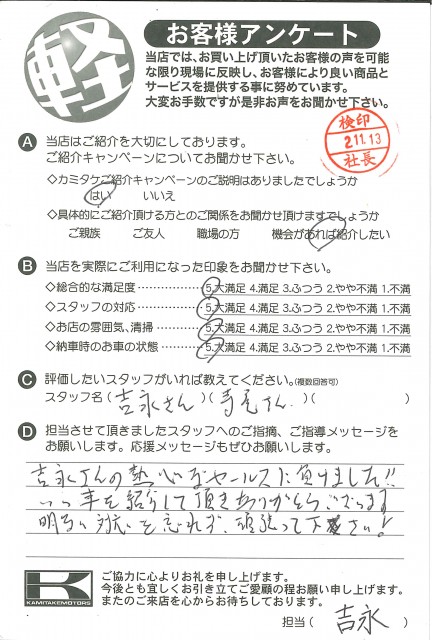 軽
お客様アンケート
当店では、お買い上げ頂いたお客様の声を可能
な限り現場に反映し、お客様により良い商品と
サービスを提供する事に努めています。
大変お手数ですが是非お声をお聞かせ下さい。
検印
211.13
社長
A 当店はご紹介を大切にしております。
ご紹介キャンペーンについてお聞かせ下さい。
◇カミタケご紹介キャンペーンのご説明はありましたでしょうか
はい いいえ
◇具体的にご紹介頂ける方とのご関係をお聞かせ頂けますでしょうか
ご親族 ご友人 職場の方 機会があれば紹介したい
B 当店を実際にご利用になった印象をお聞かせ下さい。
◇総合的な満足度 5.大満足 4.満足 3.ふつう 2.やや不満 1.不満
◇スタッフの対応 5.大満足 4.満足 3.ふつう 2.やや不満 1.不満
◇お店の雰囲気、清掃 5.大満足 4.満足 3.ふつう 2.やや不満 1.不満
◇納車時のお車の状態 5.大満足 4.満足 3.ふつう 2.やや不満 1.不満
C 評価したいスタッフがいれば教えてください。(複数回答可)
スタッフ名(吉永さん)(寺尾さん)( )
D 担当させて頂きましたスタッフへのご指摘、ご指導メッセージを
お願いします。応援メッセージもぜひお願いします。
吉永さんの熱心なセールスに負けました!!
いい車を紹介して頂きありがとうございます
明るい を忘れず、頑張って下さい!
K
KAMITAKEMOTORS
ご協力に心よりお礼を申し上げます。
今後とも宜しくお引き立てご愛顧の程お願い申し上げます。
またのご来店を心からお待ちしております。
担当(吉永)